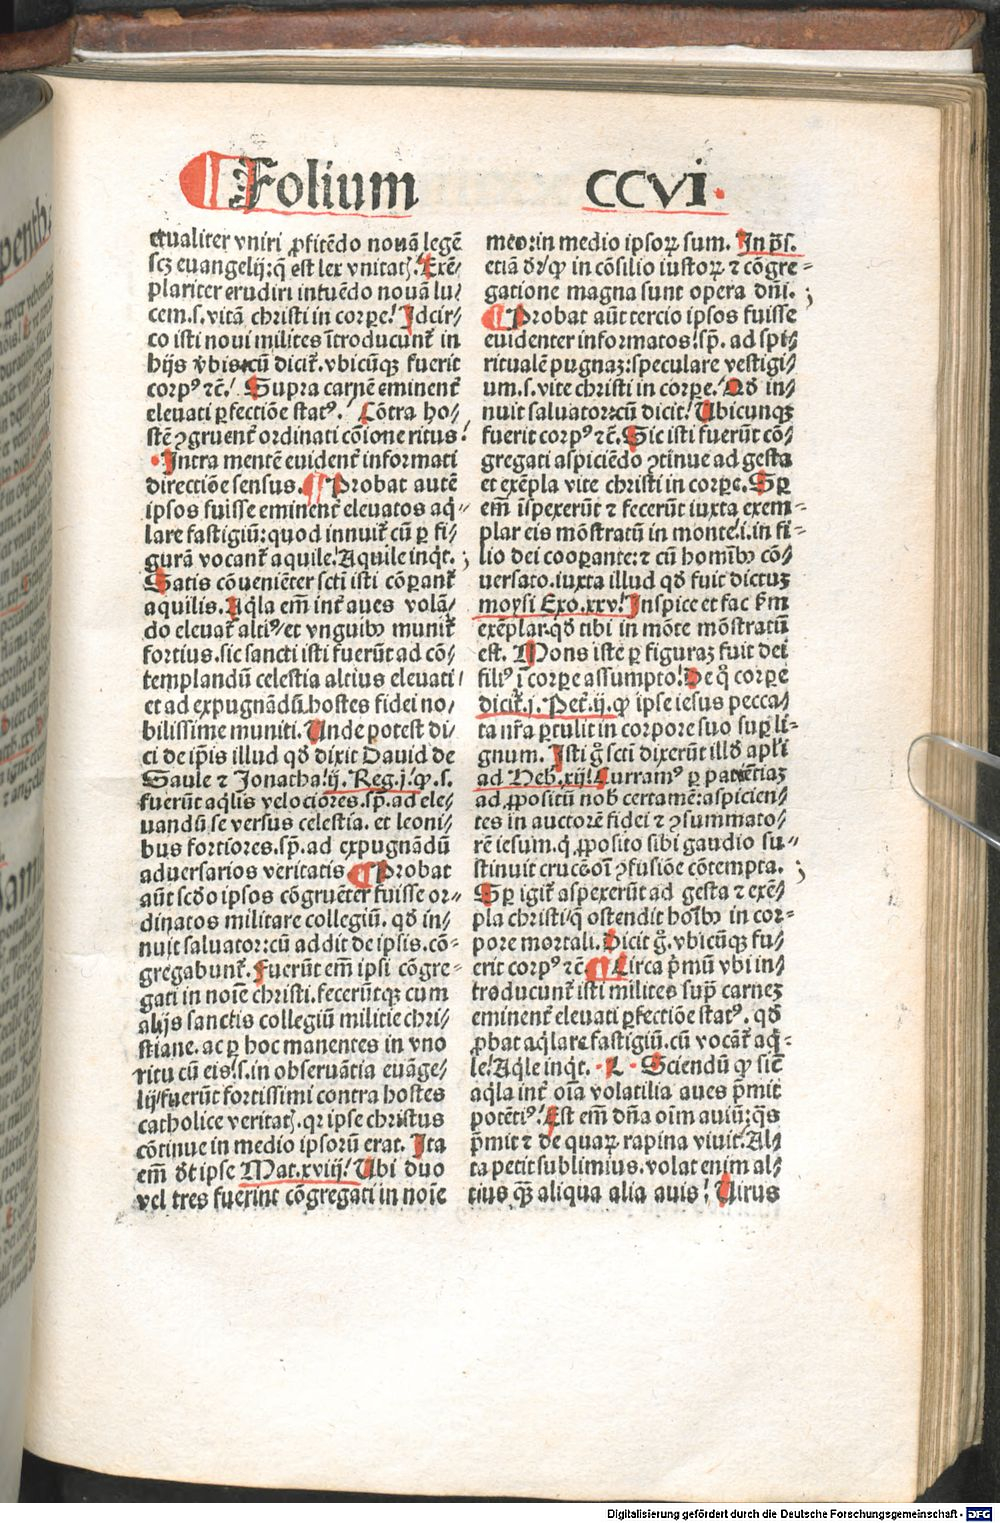 Folium CCVI.
ctualiter vniri ꝓfitēdo nouā legē
scꝫ euangelij: q̄ est lex vnitatꝭ. Exē⸗
plariter erudiri intuēdo nouā lu⸗
cem. s. vitā christi in corꝑe. Idcir⸗
co isti noui milites ītroducunt᷑ in
hijs v̄bis: cū dicit᷑. vbicūqꝫ fuerit
corpꝰ ⁊c̄. Supra carnē eminent᷑
eleuati ꝑfectiōe statꝰ. Cōtra ho⸗
stē ꝯgruent᷑ ordinati cōione ritus.
Intra mentē euident᷑ informati
directiōe sensus. ¶ Probat autē
ipsos fuisse eminent᷑ eleuatos aq̇⸗
lare fastigiū: quod innuit᷑ cū ꝑ fi⸗
gurā vocant᷑ aquile. Aquile inqt᷑.
Satis cōueniēter scti isti cōꝑant᷑
aquilis. Aq̇la em̄ int᷑ aues volā⸗
do eleuat᷑ altiꝰ/ et vnguibꝫ munit᷑
fortius. sic sancti isti fuerūt ad cō⸗
templandū celestia altius eleuati
et ad expugnādū hostes fidei no⸗
bilissime muniti. Unde potest di⸗
ci de ip̄is illud qd̄ dixit Dauid de
Saule ⁊ Jonatha. ij. Reg. j. ꝙ. s.
fuerūt aq̇lis velociores. sꝫ. ad ele⸗
uandū se versus celestia. et leoni⸗
bus fortiores. sp̄. ad expugnādū
aduersarios veritatis ¶ Probat
aūt scd̄o ipsos cōgruēter fuisse or⸗
dinatos militare collegiū. qd̄ in⸗
nuit saluator: cū addit de ipsis. cō⸗
gregabunt᷑. Fuerūt em̄ ipsi cōgre⸗
gati in noīe christi. fecerūtqꝫ cum
alijs sanctis collegiū militie chri⸗
stiane. ac ꝑ hoc manentes in vno
ritu cū eis. s. in obseruātia euāge⸗
lij/ fuerūt fortissimi contra hostes
catholice veritatꝭ. qꝛ ipse christus
cōtinue in medio ipsorū erat. Ita
em̄ dt̄ ipse Mat. xviij. Ubi duo
vel tres fuerint cōgregati in noīe
meo: in medio ipsoꝝ sum. In p̄s.
etiā dꝛ/ ꝙ in cōsilio iustoꝝ ⁊ cōgre⸗
gatione magna sunt opera dn̄i.
¶ Probat aūt tercio ipsos fuisse
euidenter informatos. sp̄. ad spi⸗
ritualē pugnaꝫ: speculare vestigi⸗
um. s. vite christi in corꝑe. Qd̄ in⸗
nuit saluator: cū dicit. Ubicunqꝫ
fuerit corpꝰ ⁊c̄. Sic isti fuerūt cō⸗
gregati aspiciēdo ꝯtinue ad gesta
et exēpla vite christi in corꝑe. Sꝑ
em̄ īspexerūt ⁊ fecerūt iuxta exem⸗
plar eis mōstratū in monte. i. in fi⸗
lio dei cooꝑante: ⁊ cū homībꝫ cō⸗
uersato. iuxta illud qd̄ fuit dictuꝫ
moysi Exo. xxv. Inspice et fac ẜm
exēplar. qd̄ tibi in mōte mōstratū
est. Mons iste ꝑ figuraꝫ fuit dei
filiꝰ ī corꝑe assumpto. De q̊ corꝑe
dicit᷑. j. Pet᷑. ij. ꝙ ipse iesus pecca⸗
ta nr̄a ꝑtulit in corpore suo suꝑ li⸗
gnum. Isti gͦ scti dixerūt illd̄ apl̄i
ad Heb. xij. Curramꝰ ꝑ patientiaꝫ
ad ꝓpositū nob̄ certamē: aspicien⸗
tes in auctorē fidei ⁊ ꝯsummato⸗
rē iesum. q̇ ꝓposito sibi gaudio su⸗
stinuit crucē ꝯfusiōe cōtempta.
Sꝑ igit᷑ aspexerūt ad gesta ⁊ exē⸗
pla christi/ q̄ ostendit hoībꝫ in cor⸗
pore mortali. Dicit gͦ. vbicūqꝫ fu⸗
erit corpꝰ ⁊c̄. ¶ Circa p̄mū vbi in⸗
troducunt᷑ isti milites sup̄ carneꝫ
eminent᷑ eleuati ꝑfectiōe statꝰ. qd̄
ꝓbat aq̇lare fastigiū. cū vocāt᷑ aq̇⸗
le. Aq̇le inqt᷑. Sciendū ꝙ sic̄
aq̇la int᷑ oīa volatilia aues p̄mit
potētiꝰ. Est em̄ dn̄a oīm auiū: q̄s
p̄mit ⁊ de quaꝝ rapina viuit. Al⸗
ta petit sublimius. volat enim al⸗
tius qꝫ̄ aliqua alia auis. Uirus
Digitalisierung gefördert durch die Deutsche Forschungsgemeinschaft - DFG